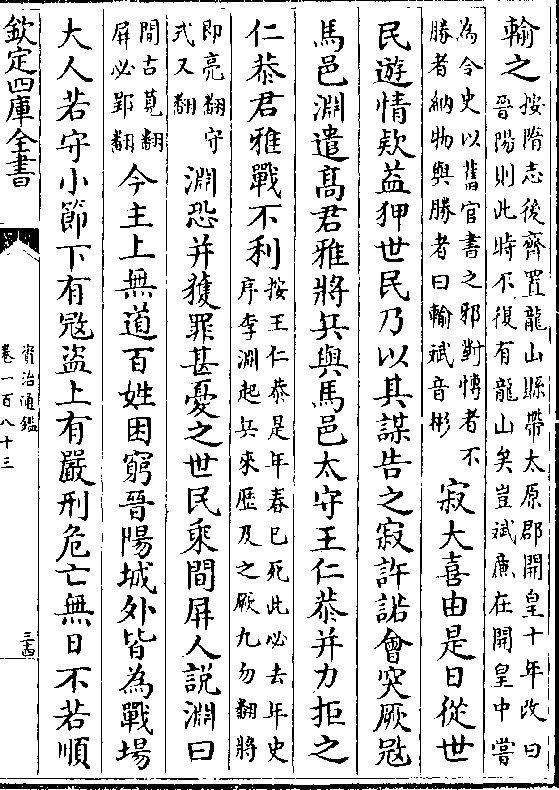 輸之按隋志後齊置龍山縣帶太原郡開皇十年改曰
晉陽則此時不復有龍山矣豈斌廉在開皇中嘗
為令史以舊官書之邪對愽者不
勝者納物與勝者曰輸斌音彬寂大喜由是日從世
民遊情欵益狎世民乃以其謀告之寂許諾會突厥冦
馬邑淵遣髙君雅將兵與馬邑太守王仁恭并力拒之
仁恭君雅戰不利按王仁恭是年春已死此必去年史
序李淵起兵來歴及之厥九勿翻將
即亮翻守
式又翻淵恐并獲罪甚憂之世民乘間屏人説淵曰
間古莧翻
屏必郢翻今主上無道百姓困窮晉陽城外皆為戰場
大人若守小節下有冦盗上有嚴刑危亡無日不若順
欽定四庫全書
資治通鑑
卷一百八十三
三古